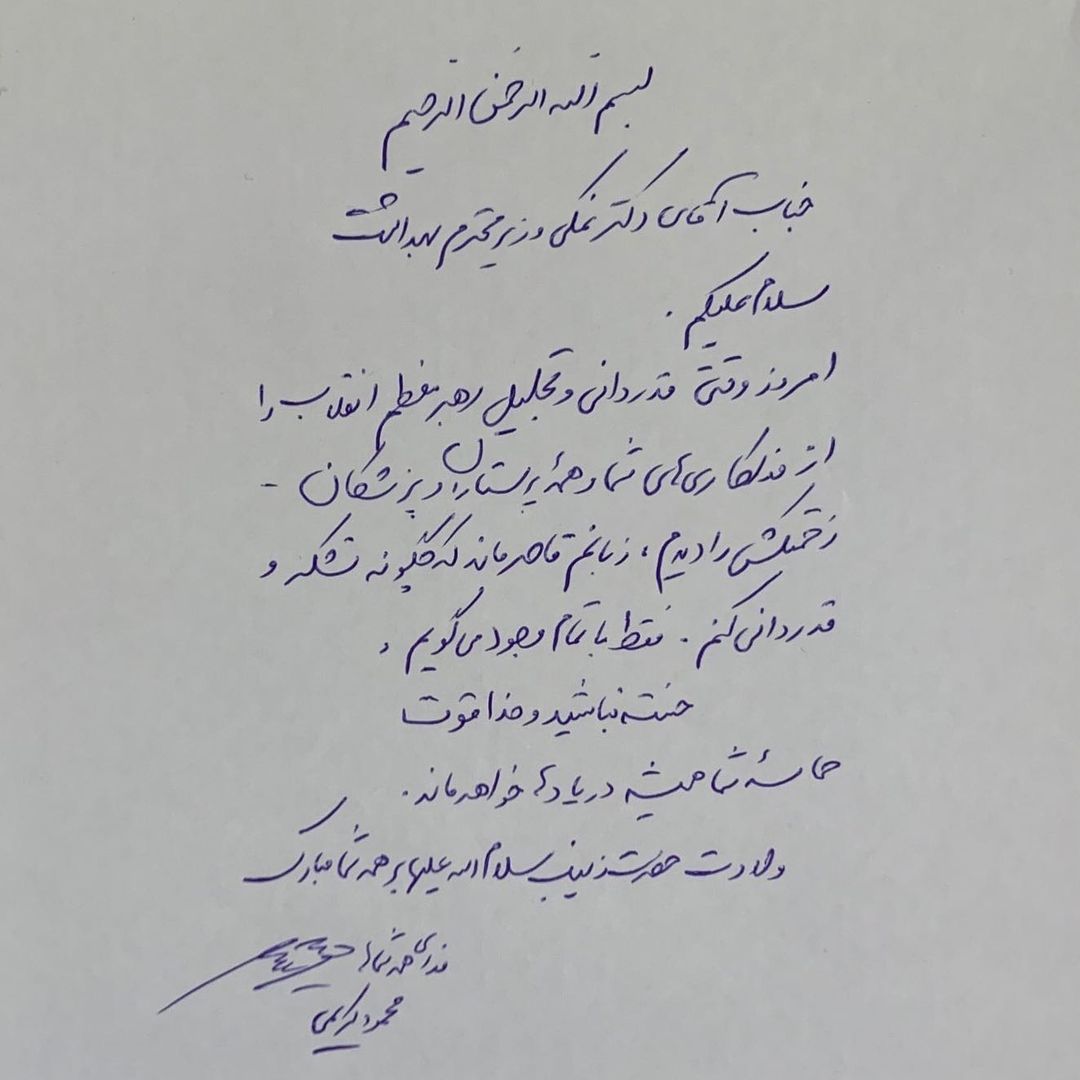 بسم الله الرحمن الرحیم
جناب آقای دکتر نمکی وزیر محترم بهداشت
سلام علیکم .
امروز وقتی قدردانی و تجلیل رهبر معظم انقلاب را
از فداکاری‌های شما و همهٔ پرستاران و پزشکان -
زحمتکش را دیدم ، زبانم قاصر ماند که چگونه تشکر و
قدردانی کنم . فقط با تمام وجود می‌گویم ،
خسته نباشید و خدا قوت
حماسهٔ شما همیشه در یادها خواهد ماند .
ولادت حضرت زینب سلام الله علیها بر همه شما مبارک
فدای همه شماها
محمود کریمی